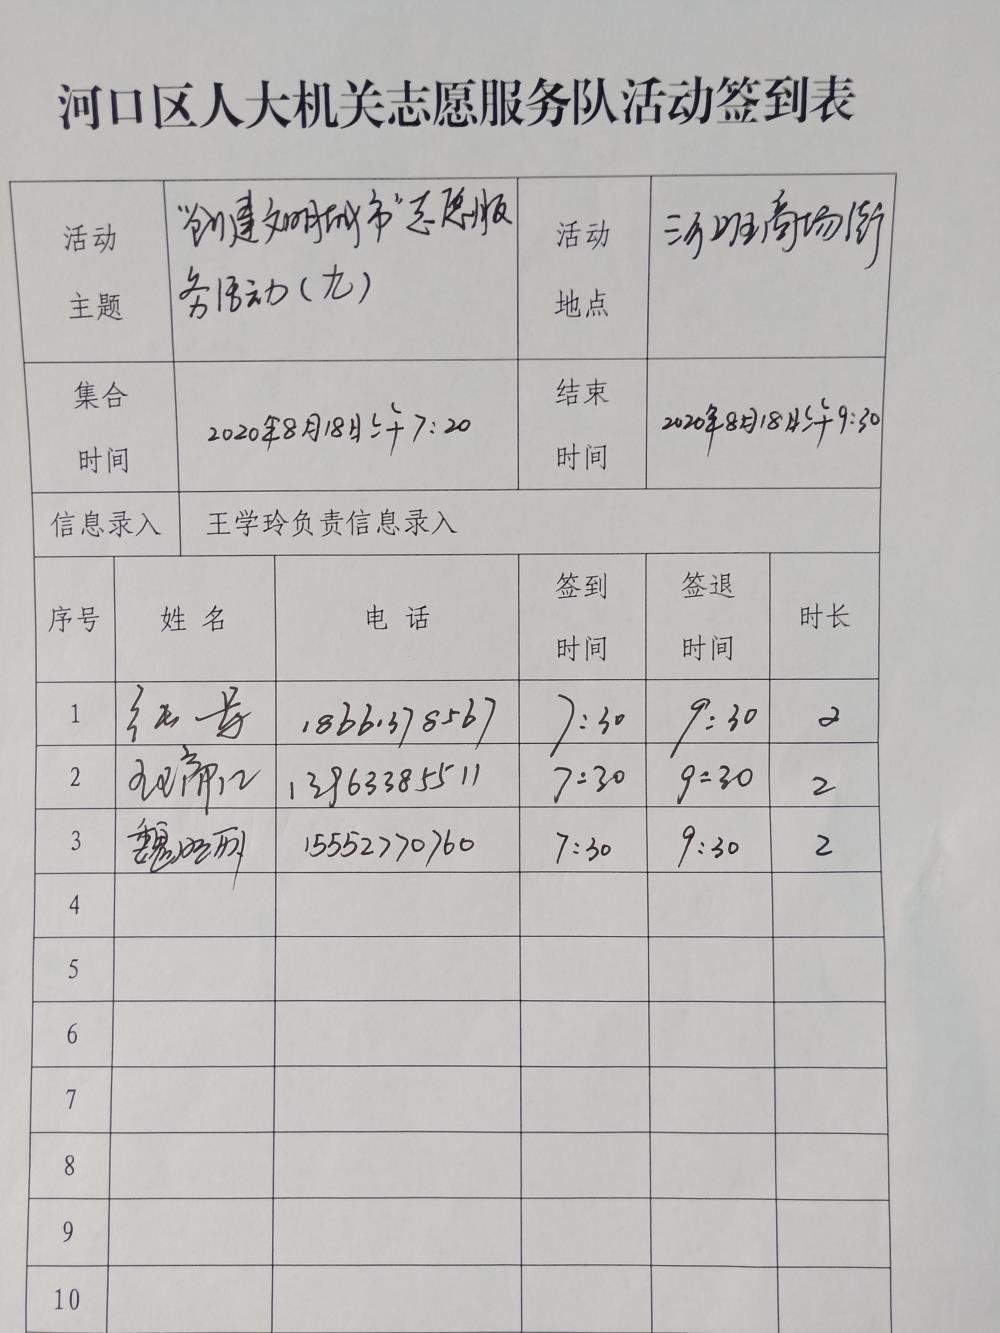 河口区人大机关志愿服务队活动签到表
活动主题
"创建文明城市"志愿服
务活动(九)
活动地点
商场街
集合时间
2020年8月18日上午7:20
结束时间
2020年8月18日上午9:30
信息录入 王学玲负责信息录入
序号 姓名 电话 签到时间 签退时间 时长
1 18661378567 7:30 9:30 2
2 13963385511 7:30 9:30 2
3 魏 15552770760 7:30 9:30 2
4
5
6
7
8
9
10